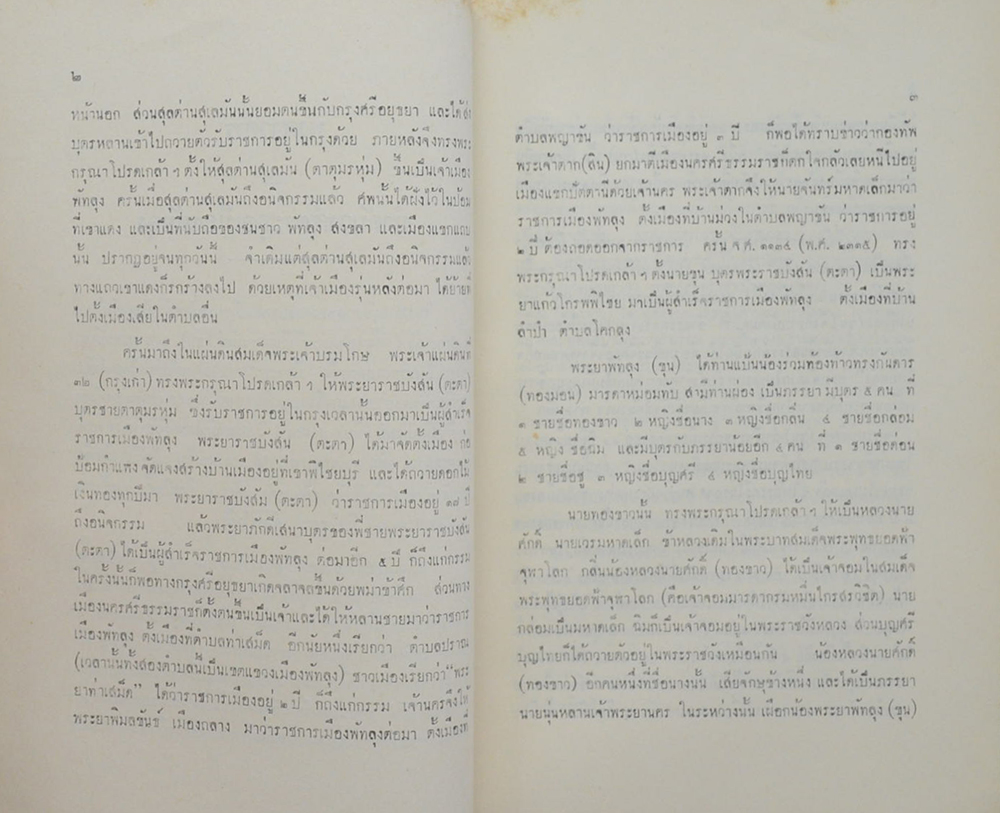 ๒
หน้านอก ส่วนสุลต่านสุเลมันนั้นยอมตนขึ้นกับกรุงศรีอยุธยา และได้ส่ง
บุตรหลานเข้าไปถวายตัวรับราชการอยู่ในกรุงด้วย ภายหลังจึงทรงพระ
กรุณาโปรดเกล้า ฯ ตั้งให้สุลต่านสุเลมัน (ตาตุมรหุ่ม) ขึ้นเป็นเจ้าเมือง
พัทลุง ครั้นเมื่อสุลต่านสุเลมันถึงอนิจกรรมแล้ว ศพนั้นได้ฝังไว้ในป้อม
ที่เขาแดง และเป็นที่นับถือของชนชาว พัทลุง สงขลา และเมืองแขกแถบ
นั้น ปรากฏอยู่จนทุกวันนี้ จำเดิมแต่สุลต่านสุเลมันถึงอนิจกรรมแล้ว
ทางแถวเขาแดงก็รกร้างลงไป ด้วยเหตุที่เจ้าเมืองรุ่นหลังต่อมา ได้ย้ายที่
ไปตั้งเมืองเสียในตำบลอื่น
ครั้นมาถึงในแผ่นดินสมเด็จพระเจ้าบรมโกษ พระเจ้าแผ่นดินที่
๓๒ (กรุงเก่า) ทรงพระกรุณาโปรดเกล้า ฯ ให้พระยาราชบังสัน (ตะตา)
บุตรชายตาตุมรหุ่ม ซึ่งรับราชการอยู่ในกรุงเวลานั้นออกมาเป็นผู้สำเร็จ
ราชการเมืองพัทลุง พระยาราชบังสัน (ตะตา) ได้มาจัดตั้งเมือง ก่อ
ป้อมกำแพง จัดแจงสร้างบ้านเมืองอยู่ที่เขาพิไชยบุรี และได้ถวายดอกไม้
เงินทองทุกปีมา พระยาราชบังสัม (ตะตา) ว่าราชการเมืองอยู่ ๑๘ ปี
ถึงอนิจกรรม แล้วพระยาภักดีเสนาบุตรของพี่ชายพระยาราชบังสัน
(ตะตา) ได้เป็นผู้สำเร็จราชการเมืองพัทลุง ต่อมาอีก ๕ ปี ก็ถึงแก่กรรม
ในครั้งนั้นก็พอทางกรุงศรีอยุธยาเกิดจลาจลขึ้นด้วยพม่าข้าศึก ส่วนทาง
เมืองนครศรีธรรมราชก็ตั้งตนขึ้นเป็นเจ้าและได้ให้หลานชายมาว่าราชการ
เมืองพัทลุง ตั้งเมืองที่ตำบลท่าเสม็ด อีกนัยหนึ่งเรียกว่า ตำบลปราณ
(เวลานั้นทั้งสองตำบลนี้เป็นเขตแขวงเมืองพัทลุง) ชาวเมืองเรียกว่า "พระ
ยาท่าเสม็ด" ได้ว่าราชการเมืองอยู่ ๒ ปี ก็ถึงแก่กรรม เจ้านครจึงให้
พระยาพิมลขันธ์ เมืองกลาง มาว่าราชการเมืองพัทลุงต่อมา ตั้งเมืองที่
๓
ตำบลพญาขัน ว่าราชการเมืองอยู่ ๓ ปี ก็พอได้ทราบข่าวว่ากองทัพ
พระเจ้าตาก(สิน) ยกมาตีเมืองนครศรีธรรมราชก็ตกใจกลัวเลยหนีไปอยู่
เมืองแขกปัตตานีด้วยเจ้านคร พระเจ้าตากจึงให้นายจันทร์มหาดเล็กมาว่า
ราชการเมืองพัทลุง ตั้งเมืองที่บ้านม่วงในตำบลพญาขัน ว่าราชการอยู่
๒ ปี ต้องถอดออกจากราชการ ครั้น จ.ศ. ๑๑๓๔ (พ.ศ. ๒๓๑๕) ทรง
พระกรุณาโปรดเกล้า ฯ ตั้งนายขุน บุตรพระราชบังสัน (ตะตา) เป็นพระ
ยาแก้วโกรพพิไชย มาเป็นผู้สำเร็จราชการเมืองพัทลุง ตั้งเมืองที่บ้าน
ลำปำ ตำบลโคกลุง
พระยาพัทลุง (ขุน) ได้ท่านแป้นน้องร่วมท้องท้าวทรงกันดาร
(ทองมอน) มารดาหม่อมทับ สามีท่านผ่อง เป็นภรรยา มีบุตร ๕ คน ที่
๑ ชายชื่อทองขาว ๒ หญิงชื่อนาง ๓ หญิงชื่อกลิ่น ๔ ชายชื่อกล่อม
๕ หญิง ชื่อนิ่ม และมีบุตรกับภรรยาน้อยอีก ๔ คน ที่ ๑ ชายชื่อคอน
๒ ชายชื่อชู ๓ หญิงชื่อบุญศรี ๔ หญิงชื่อบุญไทย
นายทองขาวนั้น ทรงพระกรุณาโปรดเกล้า ฯ ให้เป็นหลวงนาย
ศักดิ์ นายเวรมหาดเล็ก ข้าหลวงเดิมในพระบาทสมเด็จพระพุทธยอดฟ้า
จุฬาโลก กลิ่นน้องหลวงนายศักดิ์ (ทองขาว) ได้เป็นเจ้าจอมในสมเด็จ
พระพุทธยอดฟ้าจุฬาโลก (คือเจ้าจอมมารดากรมหมื่นไกรสรวิชิต) นาย
กล่อมเป็นมหาดเล็ก นิ่มก็เป็นเจ้าจอมอยู่ในพระราชวังหลวง ส่วนบุญศรี
บุญไทยก็ได้ถวายตัวอยู่ในพระราชวังเหมือนกัน น้องหลวงนายศักดิ์
(ทองขาว) อีกคนหนึ่งที่ชื่อนางนั้น เสียจักษุข้างหนึ่ง และได้เป็นภรรยา
นายนุ่นหลานเจ้าพระยานคร ในระหว่างนั้น เผือกน้องพระยาพัทลุง (ขุน)